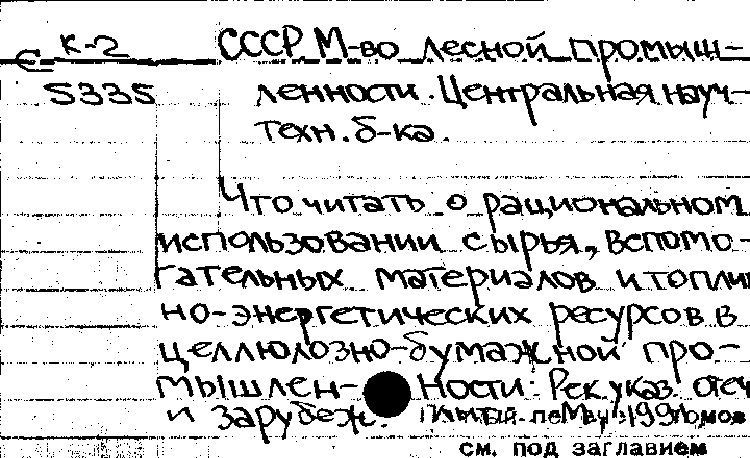 К-2 СССР. М-во лесной промыш-
S335 ленности. Центральная науч-
техн. б-ка.
Что читать о рациональном
использовании сырья, вспомо-
гательных материалов и топлив
но-энергетических ресурсов в
целлюлозно-бумажной про-
мышлен- ности: Рек. указ. отеч
и зарубеж.
см. под заглавием